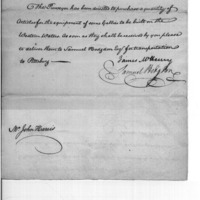 The Purveyor has been directed to purchase a quantity of
Articles for the equipment of some Gallies to be built on the
Western Waters. As soon as they shall be received by you please
to deliver them to Samuel Hodgdon Esqr. for transportation
to Pittsburg
James McHenry
Samuel Hodgdon
Mr John Harris